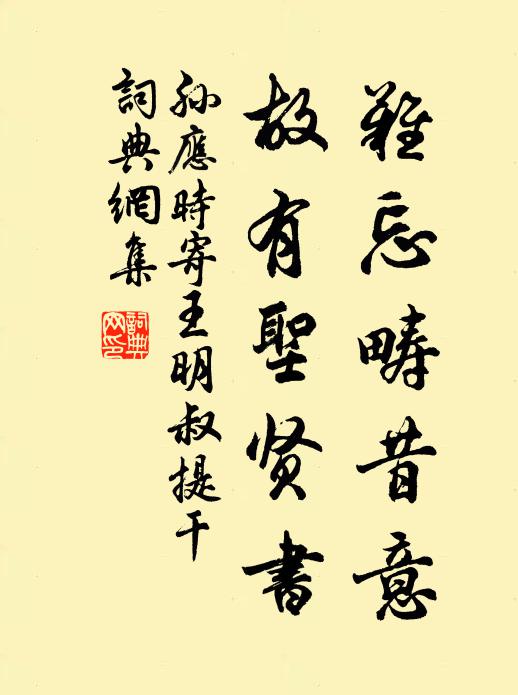 難忘疇昔意
故有聖賢書
孫應時寄王明叔提干
詞典網集
詞典網印